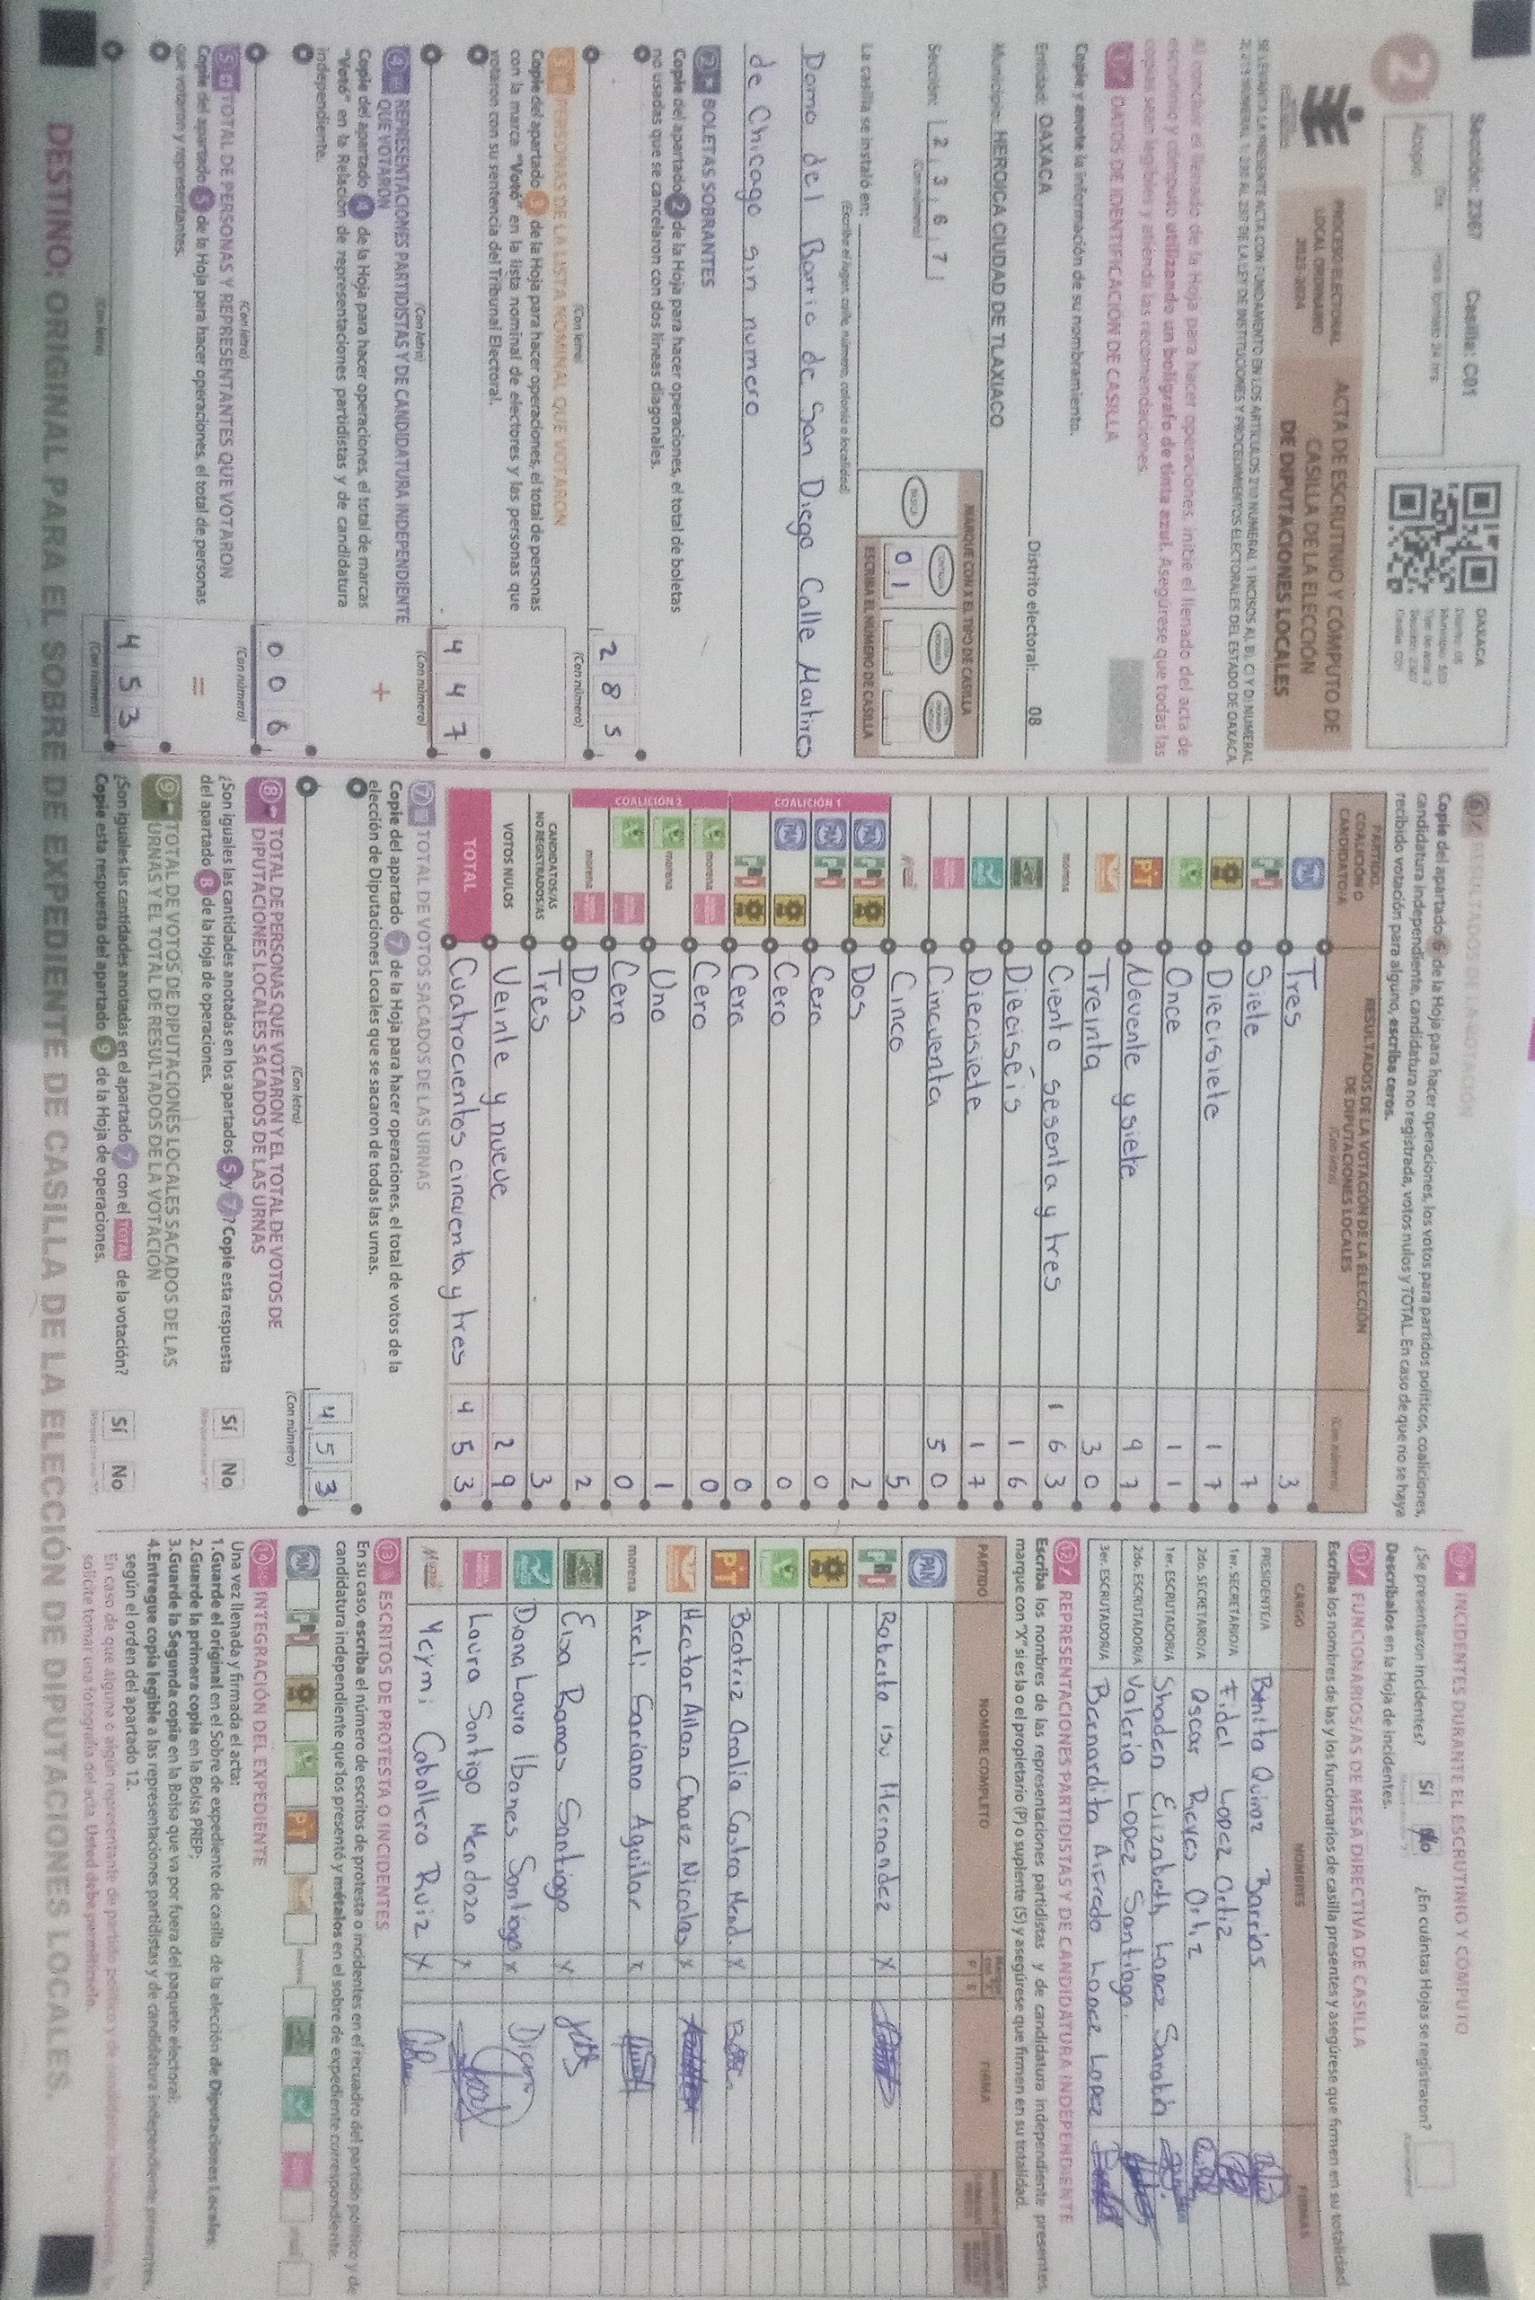 Sección: 2367 Casilla: C01
OAXACA
2
PROCESO ELECTORAL
LOCAL ORDINARIO
2023-2024
ACTA DE ESCRUTINIO Y CÓMPUTO DE
CASILLA DE LA ELECCIÓN
DE DIPUTACIONES LOCALES
Al concluir el llenado de la Hoja para hacer operaciones, inicie el llenado del acta de
escrutinio y cómputo utilizando un bolígrafo de tinta azul. Asegúrese que todas las
copias sean legibles y atienda las recomendaciones.
1 DATOS DE IDENTIFICACIÓN DE CASILLA
Copie y anote la información de su nombramiento.
Entidad: OAXACA Distrito electoral: 08
Municipio: HEROICA CIUDAD DE TLAXIACO
Sección: 2 3 6 7
(Con número)
MARQUE CON X EL TIPO DE CASILLA
ESCRIBA EL NÚMERO DE CASILLA
0 1
La casilla se instaló en:
(Escriba el lugar, calle, número, colonia o localidad)
Domo del Barrio de San Diego Calle Martires
de Chicago sin numero
2 BOLETAS SOBRANTES
Copie del apartado 2 de la Hoja para hacer operaciones, el total de boletas
no usadas que se cancelaron con dos líneas diagonales.
2 8 5
(Con letra) (Con número)
3 PERSONAS DE LA LISTA NOMINAL QUE VOTARON
Copie del apartado 3 de la Hoja para hacer operaciones, el total de personas
con la marca "Votó" en la lista nominal de electores y las personas que
votaron con su sentencia del Tribunal Electoral.
4 4 7
(Con letra) (Con número)
4 REPRESENTACIONES PARTIDISTAS Y DE CANDIDATURA INDEPENDIENTE
QUE VOTARON
+
Copie del apartado 4 de la Hoja para hacer operaciones, el total de marcas
"Votó" en la Relación de representaciones partidistas y de candidatura
independiente.
0 0 6
(Con letra) (Con número)
5 TOTAL DE PERSONAS Y REPRESENTANTES QUE VOTARON
=
Copie del apartado 5 de la Hoja para hacer operaciones, el total de personas
que votaron y representantes.
4 5 3
(Con letra) (Con número)
6 RESULTADOS DE LA VOTACIÓN
Copie del apartado 6 de la Hoja para hacer operaciones, los votos para partidos políticos, coaliciones,
candidatura independiente, candidatura no registrada, votos nulos y TOTAL. En caso de que no se haya
recibido votación para alguno, escriba ceros.
PARTIDO, COALICIÓN O CANDIDATO/A
RESULTADOS DE LA VOTACIÓN DE LA ELECCIÓN
DE DIPUTACIONES LOCALES
(Con letra) (Con número)
PAN Tres 3
PRI Siete 7
Diecisiete 17
Once 11
PT Novente y siete 97
Treinta 30
morena Ciento sesenta y tres 163
Dieciséis 16
Diecisiete 17
Cincuenta 50
Cinco 5
COALICIÓN 1
PAN PRI Dos 2
PAN PRI Cero 0
PAN Cero 0
PRI Cero 0
COALICIÓN 2
morena Cero 0
morena Uno 1
Cero 0
morena Dos 2
CANDIDATOS/AS NO REGISTRADOS/AS Tres 3
VOTOS NULOS Veinte y nueve 29
TOTAL Cuatrocientos cincuenta y tres 453
7 TOTAL DE VOTOS SACADOS DE LAS URNAS
Copie del apartado 7 de la Hoja para hacer operaciones, el total de votos de la
elección de Diputaciones Locales que se sacaron de todas las urnas.
4 5 3
(Con letra) (Con número)
8 TOTAL DE PERSONAS QUE VOTARON Y EL TOTAL DE VOTOS DE
DIPUTACIONES LOCALES SACADOS DE LAS URNAS
¿Son iguales las cantidades anotadas en los apartados 5 y 7? Copie esta respuesta
del apartado 8 de la Hoja de operaciones.
Sí No
9 TOTAL DE VOTOS DE DIPUTACIONES LOCALES SACADOS DE LAS
URNAS Y EL TOTAL DE RESULTADOS DE LA VOTACIÓN
¿Son iguales las cantidades anotadas en el apartado 7 con el TOTAL de la votación?
Copie esta respuesta del apartado 9 de la Hoja de operaciones.
Sí No
10 INCIDENTES DURANTE EL ESCRUTINIO Y CÓMPUTO
¿Se presentaron incidentes? Sí No ¿En cuántas Hojas se registraron?
Descríbalos en la Hoja de incidentes.
11 FUNCIONARIOS/AS DE MESA DIRECTIVA DE CASILLA
Escriba los nombres de las y los funcionarios de casilla presentes y asegúrese que firmen en su totalidad.
CARGO NOMBRES FIRMAS
PRESIDENTE/A Benito Quiroz Barrios
1er. SECRETARIO/A Fidel Lopez Ortiz
2do. SECRETARIO/A Oscar Reyes Ortiz
1er. ESCRUTADOR/A Shaden Elizabeth Lopez Sarabia
2do. ESCRUTADOR/A Valeria Lopez Santiago
3er. ESCRUTADOR/A Bernardito Alfredo Lopez Lopez
12 REPRESENTACIONES PARTIDISTAS Y DE CANDIDATURA INDEPENDIENTE
Escriba los nombres de las representaciones partidistas y de candidatura independiente presentes,
marque con "X" si es la o el propietario (P) o suplente (S) y asegúrese que firmen en su totalidad.
PARTIDO NOMBRE COMPLETO FIRMA
PAN
PRI Roberto Isu Hernandez X
PT Beatriz Oralia Castro Mend. X
Hector Allan Chavez Nicolas X
morena Areli Soriano Aguilar X
Elsa Ramos Santiago X
Diana Laura Ibanes Santiago X
Laura Santigo Mendoza X
Yeymi Caballero Ruiz X
13 ESCRITOS DE PROTESTA O INCIDENTES
En su caso, escriba el número de escritos de protesta o incidentes en el recuadro del partido político y de
candidatura independiente que los presentó y métalos en el sobre de expediente correspondiente.
PAN PRI PT
14 INTEGRACIÓN DEL EXPEDIENTE
Una vez llenada y firmada el acta:
1.Guarde el original en el Sobre de expediente de casilla de la elección de Diputaciones Locales;
2.Guarde la primera copia en la Bolsa PREP;
3.Guarde la Segunda copia en la Bolsa que va por fuera del paquete electoral;
4.Entregue copia legible a las representaciones partidistas y de candidatura independiente presentes,
según el orden del apartado 12.
DESTINO: ORIGINAL PARA EL SOBRE DE EXPEDIENTE DE CASILLA DE LA ELECCIÓN DE DIPUTACIONES LOCALES.